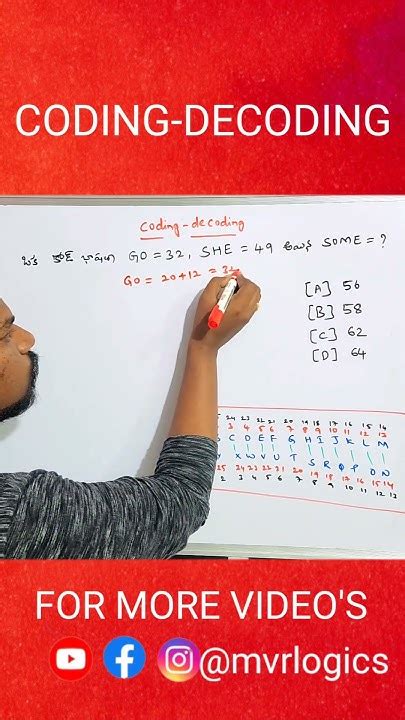 CODING-DECODING
Coding-decoding
ఒక కోడ్ భాషలో GO = 32, SHE = 49 అయిన SOME = ?
GO = 20+12 = 32
[A] 56
[B] 58
[C] 62
[D] 64
24 23 22 21 20 19 18 17 16 15 14
3 4 5 6 7 8 9 10 11 12 13
C D E F G H I J K L M
X W V U T S R Q P O N
24 23 22 21 20 19 18 17 16 15 14
3 4 5 6 7 8 9 10 11 12 13
FOR MORE VIDEO'S
@mvrlogics